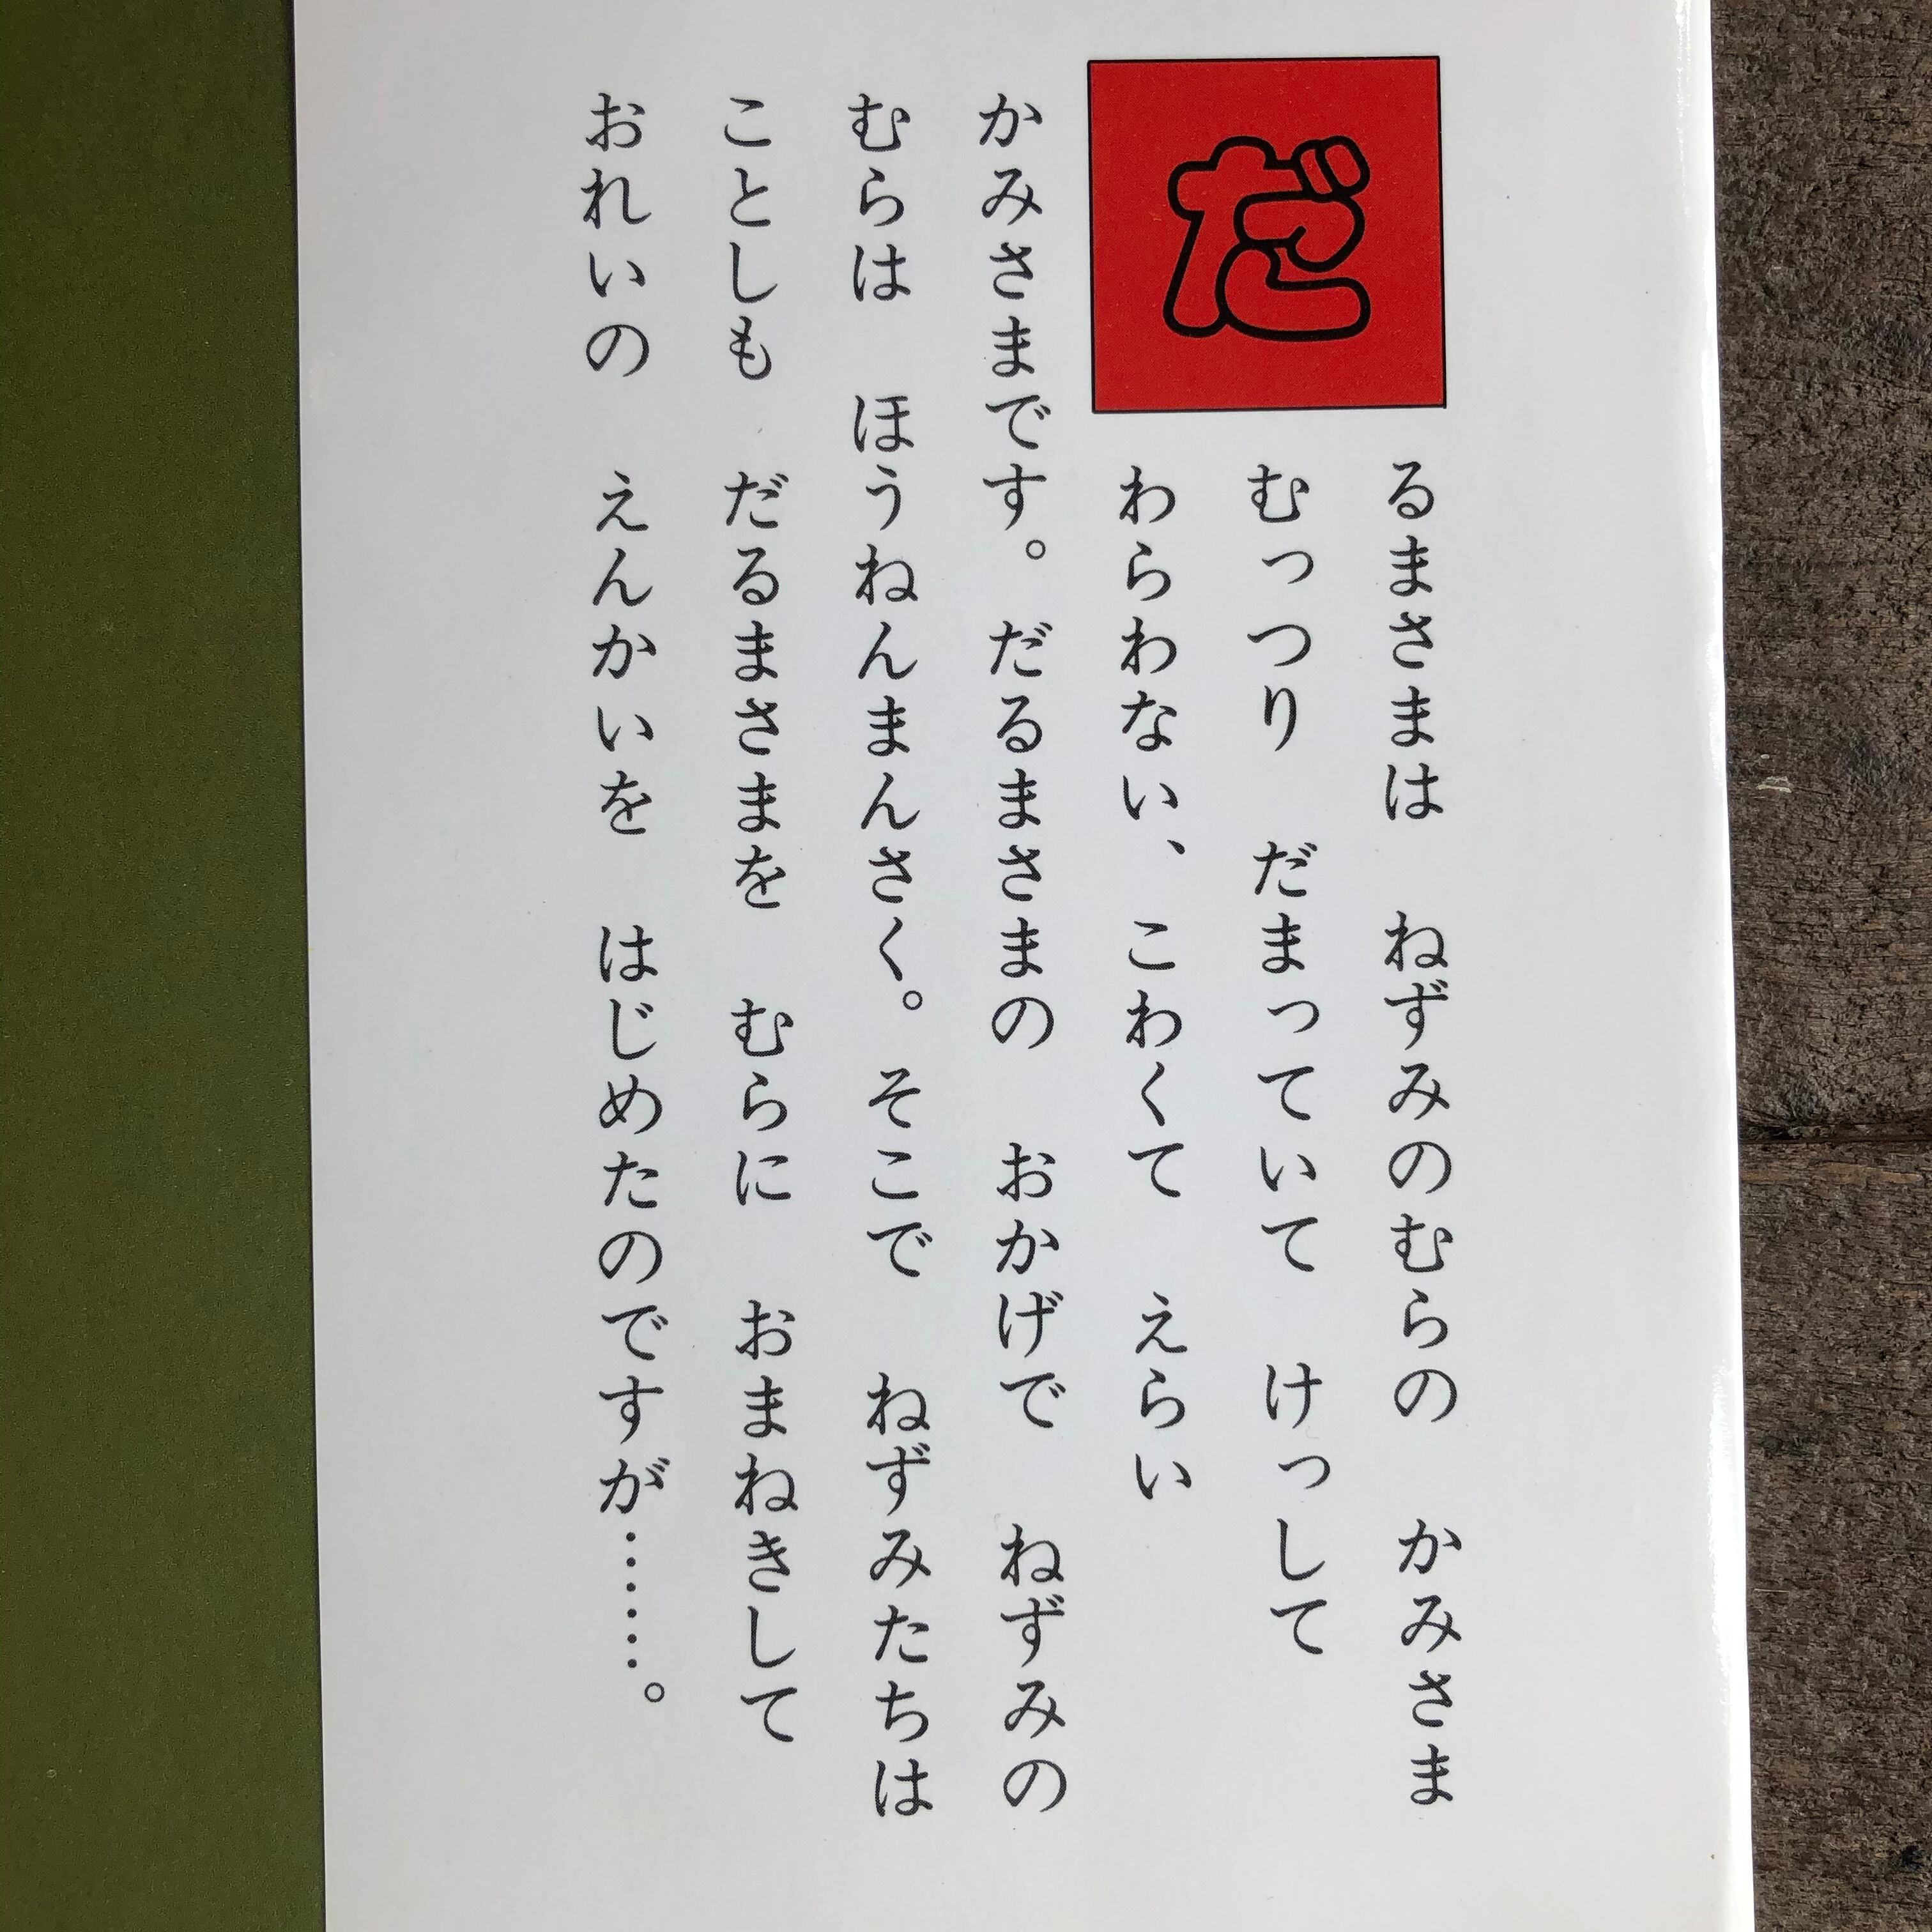 だるまさまは　ねずみのむらの　かみさま
むっつり　だまっていて　けっして
わらわない、こわくて　えらい
かみさまです。だるまさまの　おかげで　ねずみの
むらは　ほうねんまんさく。そこで　ねずみたちは
ことしも　だるまさまを　むらに　おまねきして
おれいの　えんかいを　はじめたのですが……。